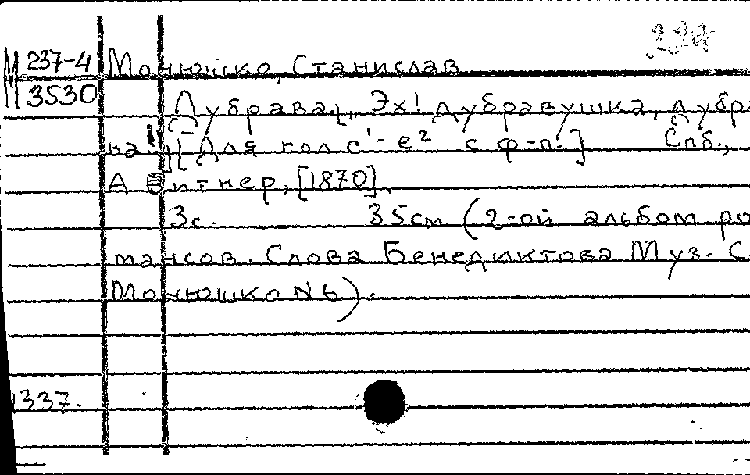 М 237-4 Монюшко, Станислав
М 3530 Дубрава. "Эх! дубравушка, дубра
на" [Для гол c¹ - e² с ф-п.] Спб.,
А Битнер, [1870].
3с. 35см (2-ой альбом ро
мансов. Слова Бенедиктова Муз. С.
Монюшко №6).
337.